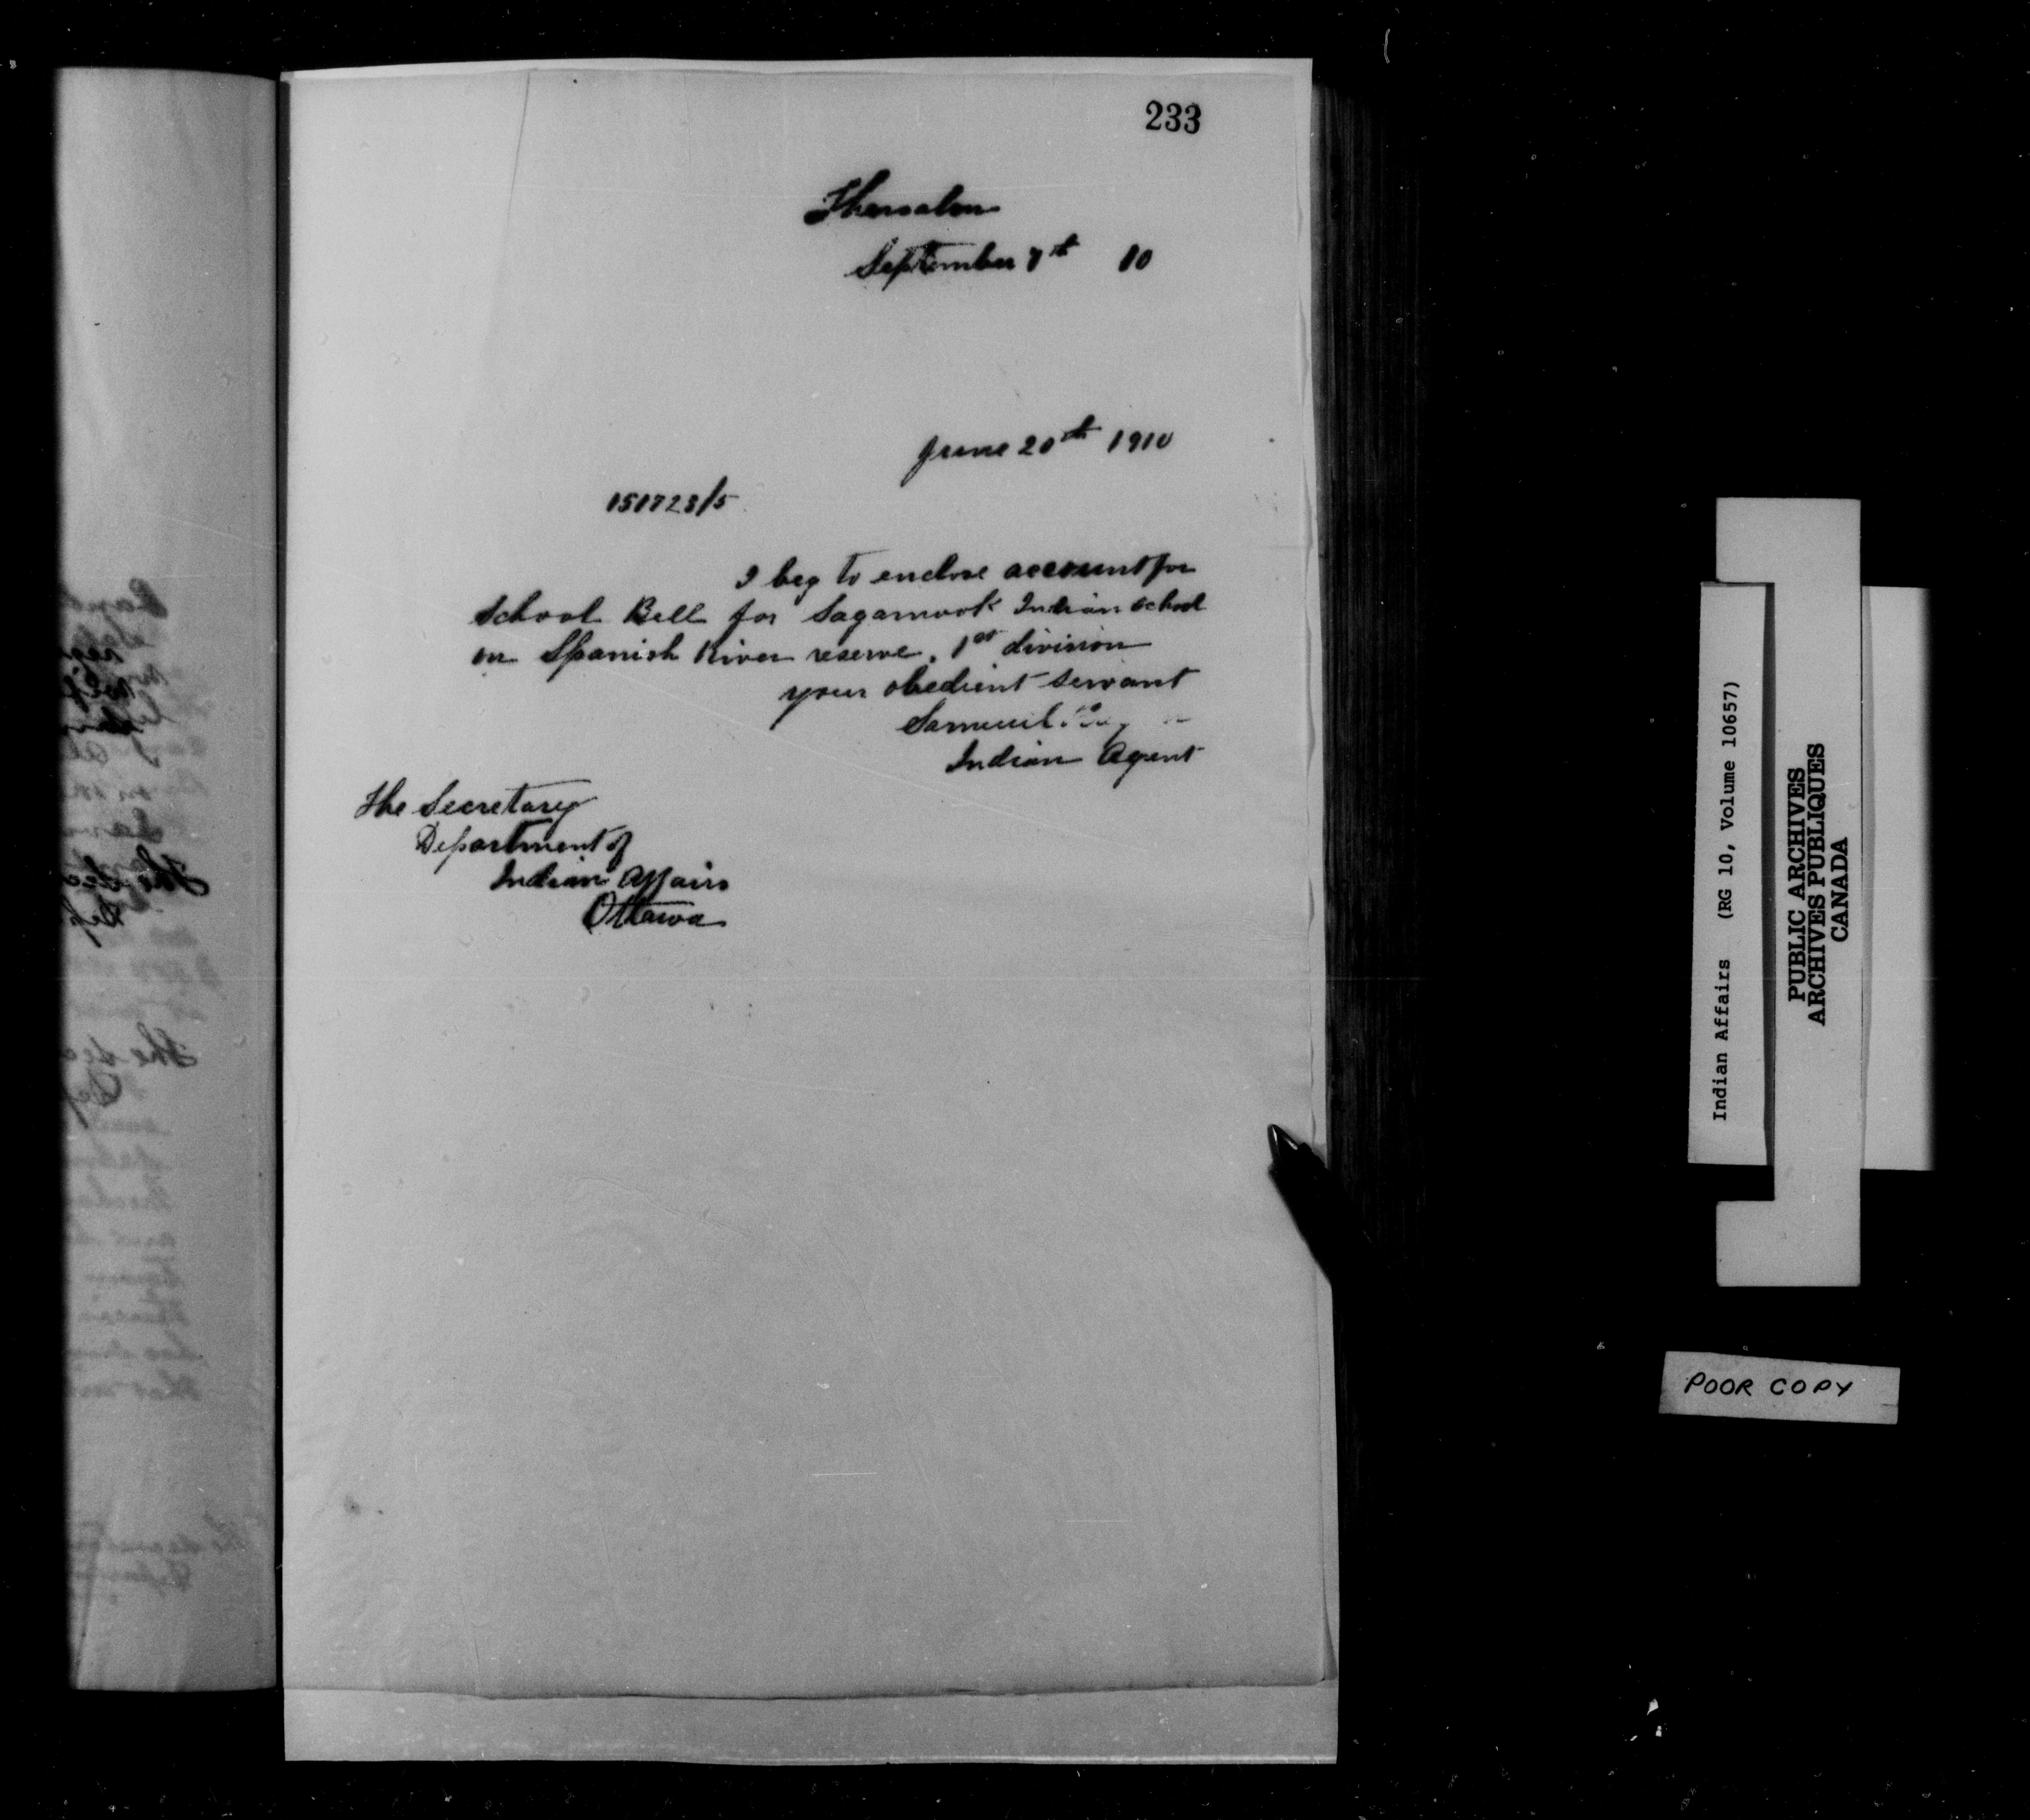 233
Thessalon
September 7th 10
June 20th 1910
151723/5
I beg to enclose account for
School Bell for Sagamook Indian School
on Spanish River reserve, 1st division
your obedient servant
Samuel
Indian Agent
The Secretary
Department of
Indian Affairs
Ottawa
Indian Affairs (RG 10, Volume 10657)
PUBLIC ARCHIVES
ARCHIVES PUBLIQUES
CANADA
POOR COPY